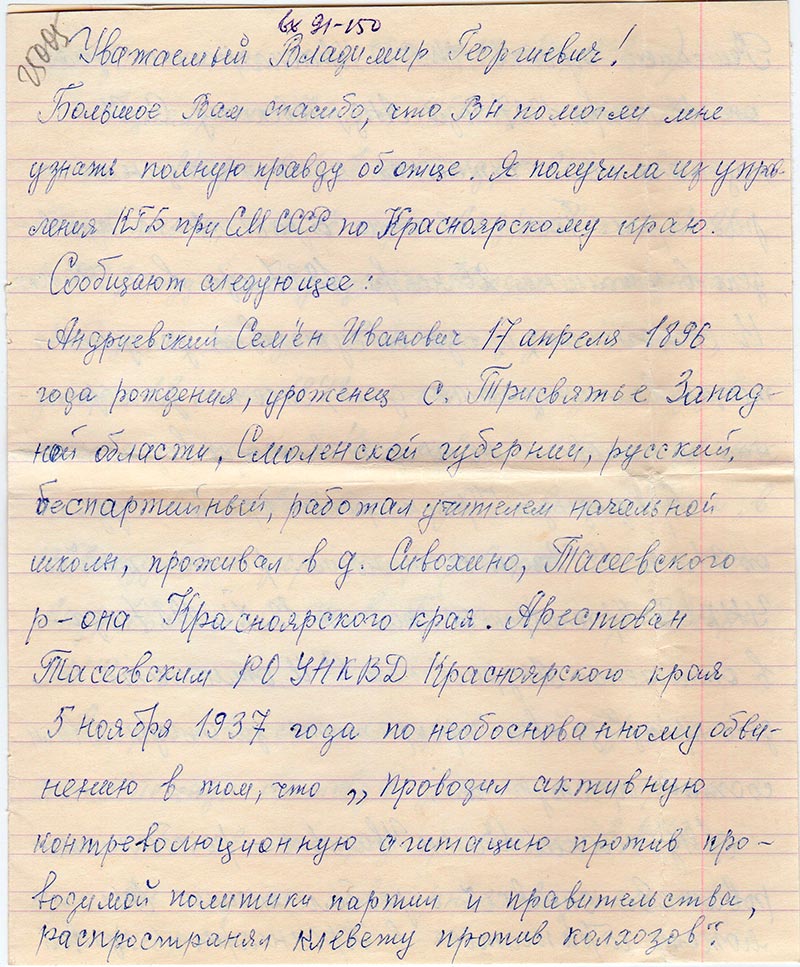 вх 91-150
25005
Уважаемый Владимир Георгиевич!
Большое Вам спасибо, что Вы помогли мне
узнать полную правду об отце. Я получила из управ-
ления КГБ при СМ СССР по Красноярскому краю.
Сообщают следующее:
Андриевский Семён Иванович 17 апреля 1896
года рождения, уроженец с. Трисвятье Запад-
ной области, Смоленской губернии, русский,
беспартийный, работал учителем начальной
школы, проживал в д. Сивохино, Тасеевского
р-она Красноярского края. Арестован
Тасеевским РО УНКВД Красноярского края
5 ноября 1937 года по необоснованному обви-
нению в том, что „проводил активную
контреволюционную агитацию против про-
водимой политики партии и правительства,
распространял клевету против колхозов".